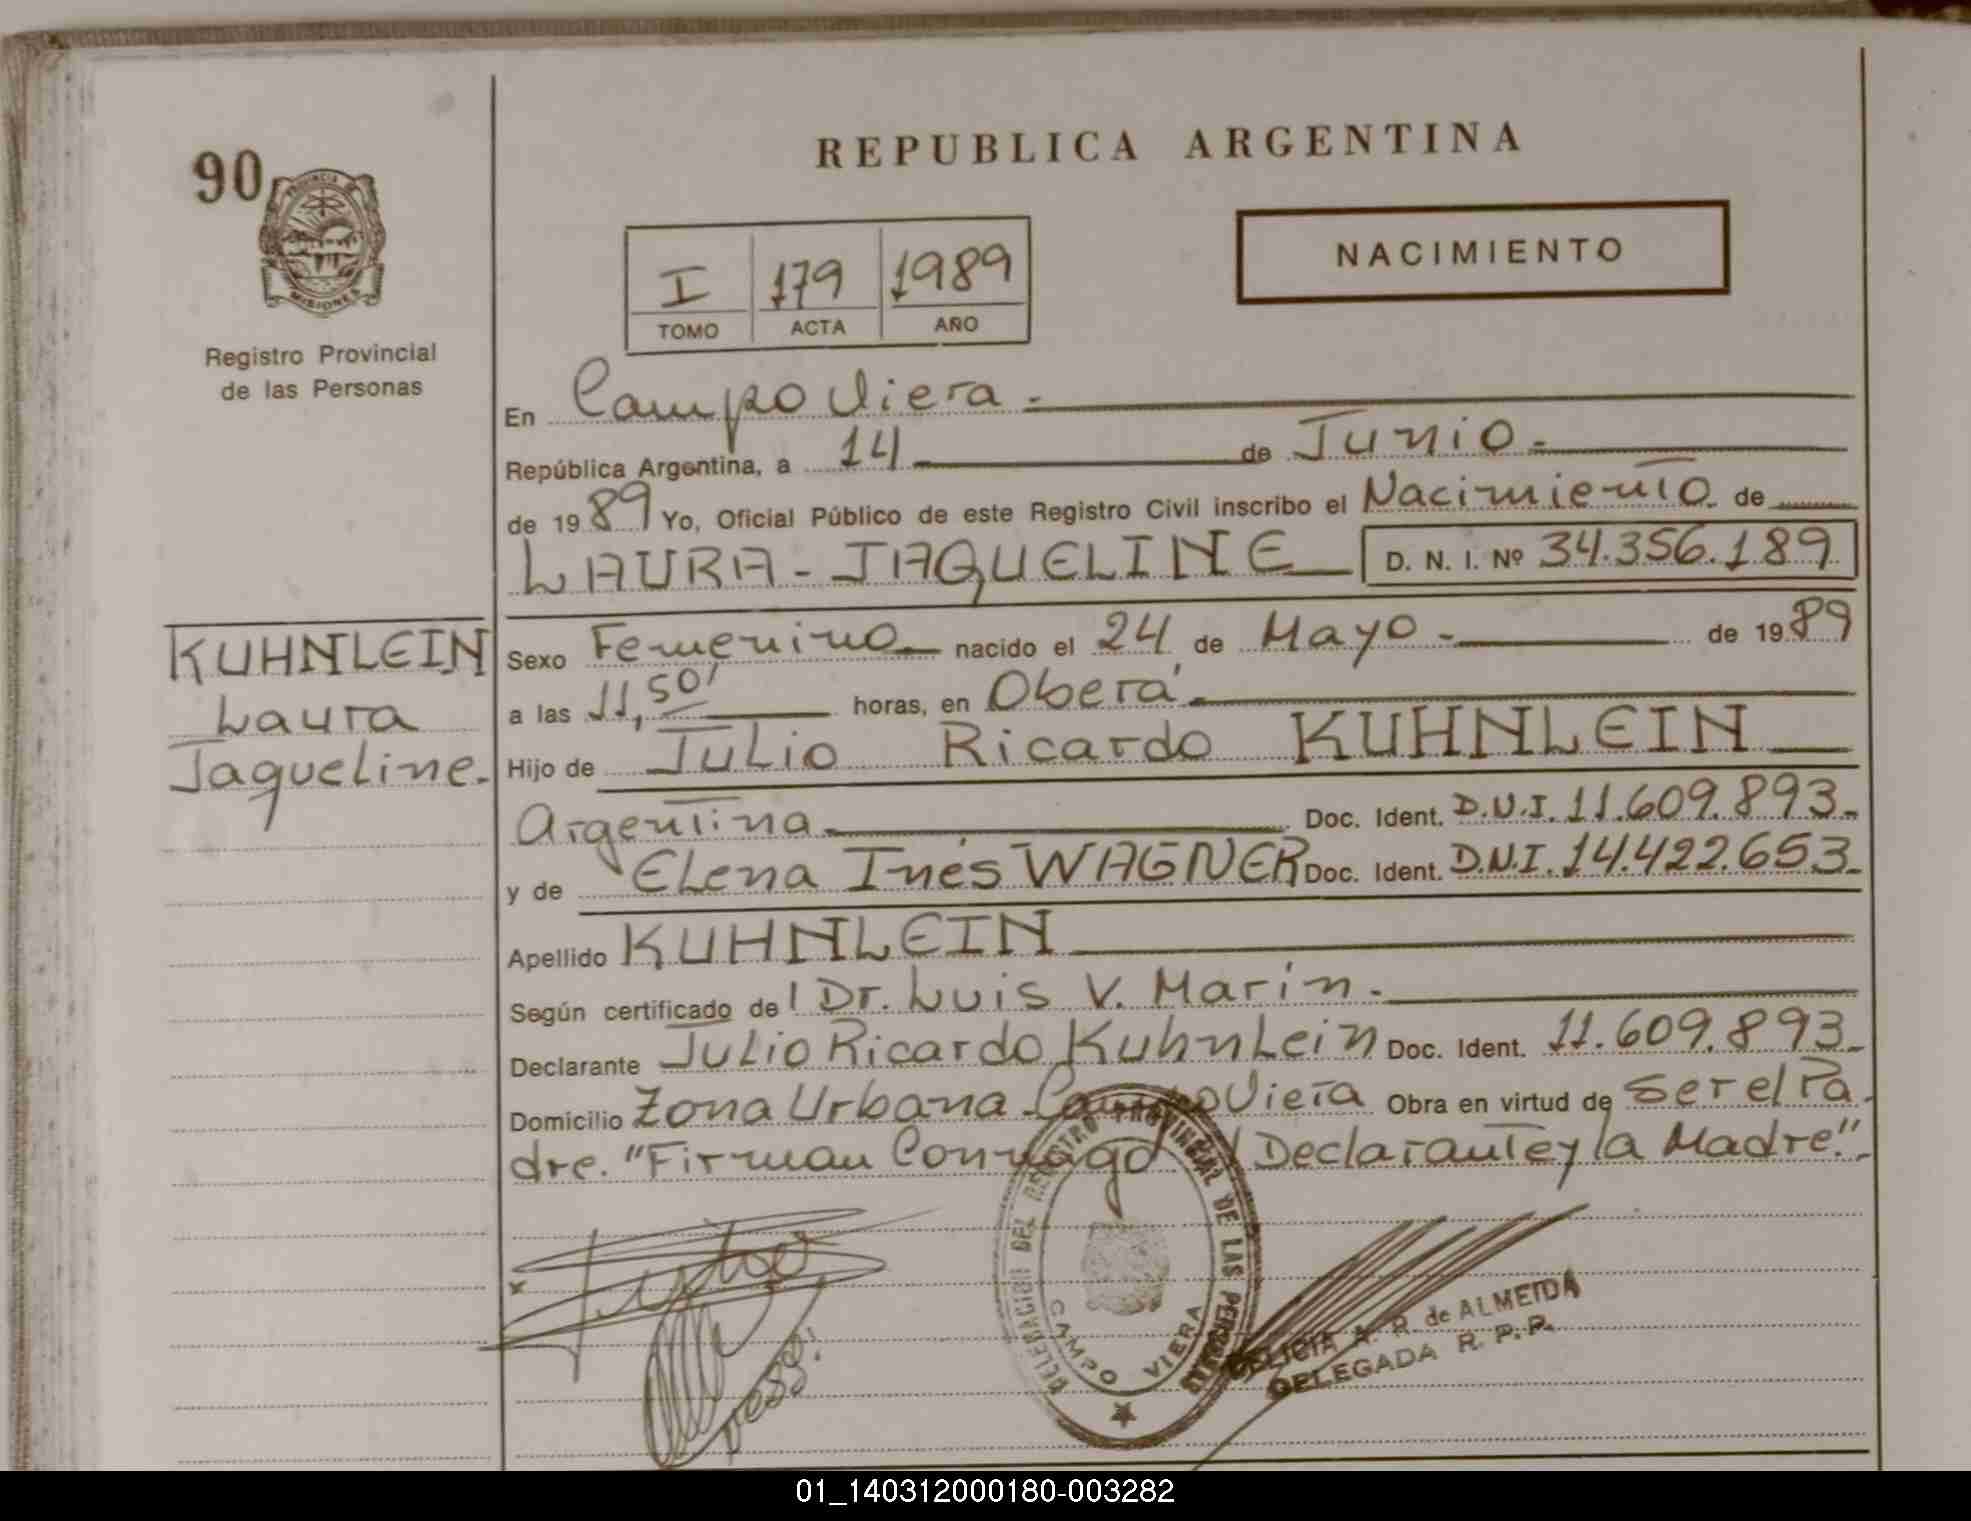 90
PROVINCIA DE
MISIONES
Registro Provincial
de las Personas
REPUBLICA ARGENTINA
NACIMIENTO
I 179 1989
TOMO ACTA AÑO
En Campo Viera.-
República Argentina, a 14 de Junio.-
de 1989 Yo, Oficial Público de este Registro Civil inscribo el Nacimiento de
LAURA-JAQUELINE D. N. I. Nº 34.356.189
KUHNLEIN
Laura
Jaqueline.-
Sexo Femenino nacido el 24 de Mayo.- de 1989
a las 11,50' horas, en Oberá.-
Hijo de Julio Ricardo KUHNLEIN
Argentina.- Doc. Ident. D.N.I. 11.609.893.-
y de Elena Inés WAGNER Doc. Ident. D.N.I. 14.422.653.-
Apellido KUHNLEIN
Según certificado del Dr. Luis V. Marin.-
Declarante Julio Ricardo Kuhnlein Doc. Ident. 11.609.893.-
Domicilio Zona Urbana Campo Viera Obra en virtud de ser el Pa
dre. "Firman Conmigo el Declarante y la Madre".-
DELEGACION DEL REGISTRO PROVINCIAL DE LAS PERSONAS
CAMPO VIERA
DELICIA A. R. de ALMEIDA
DELEGADA R. P. P.
01_140312000180-003282